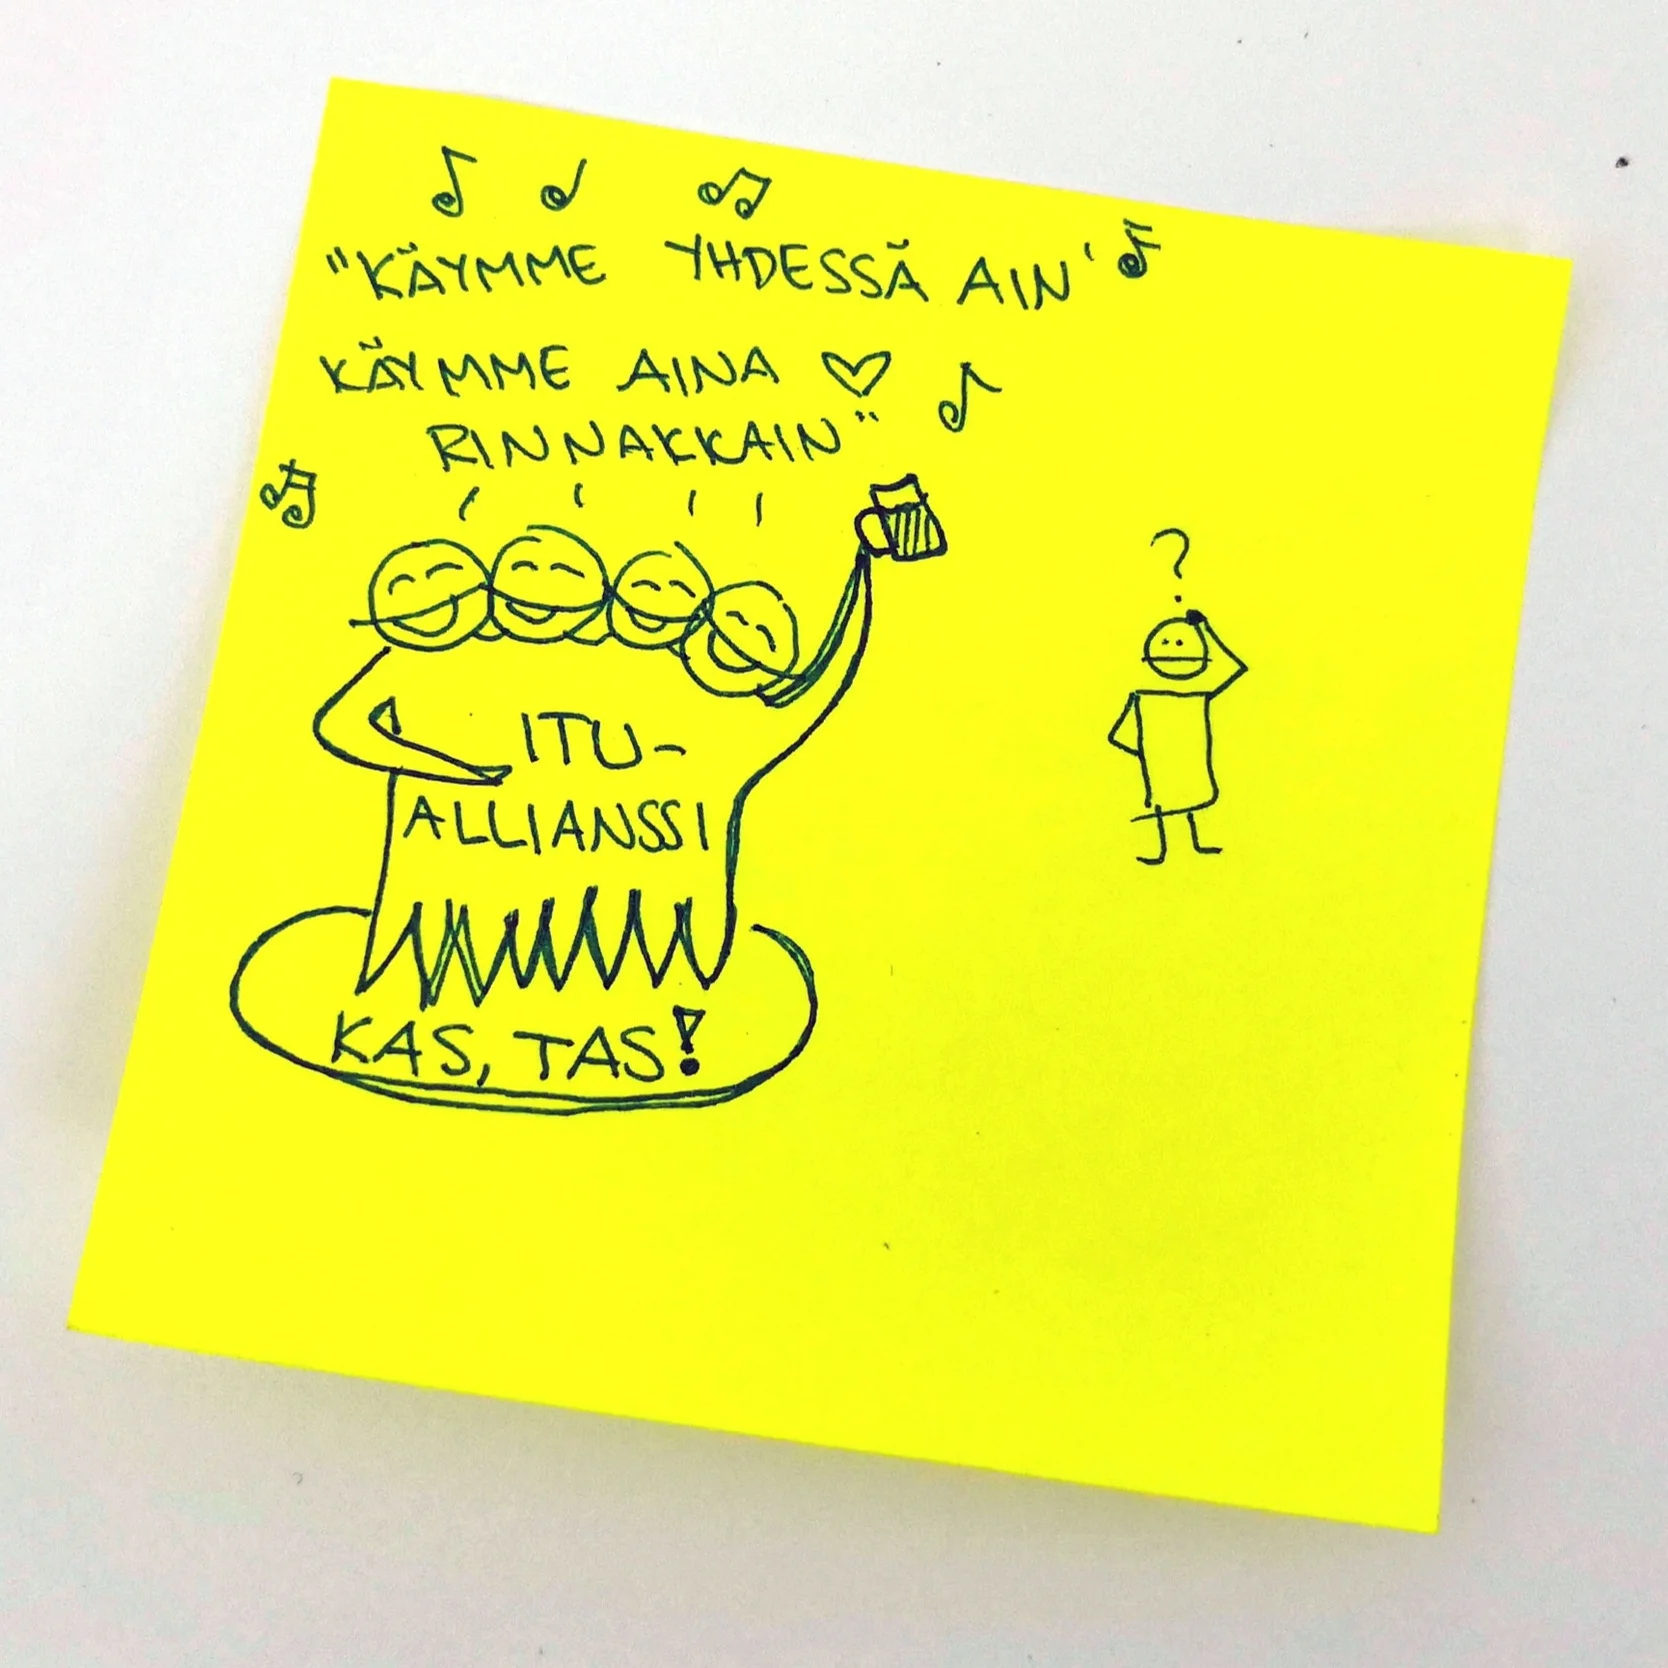 "KÄYMME YHDESSÄ AIN'
KÄYMME AINA ♡
RINNAKKAIN"
?
ITU-
ALLIANSSI
KAS, TAS!